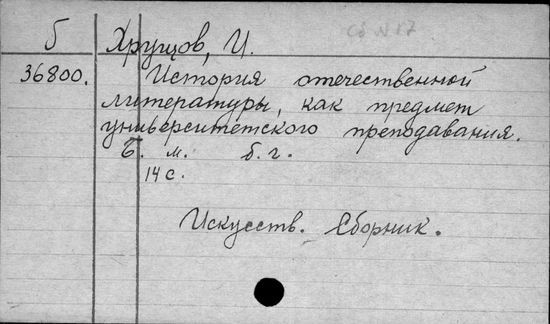 Сб N 17
Б Хрущов, И.
36800. История отечественной
литературы, как предмет
университетского преподавания.
б. м. б. г.
14 с.
Искусств. Сборник.